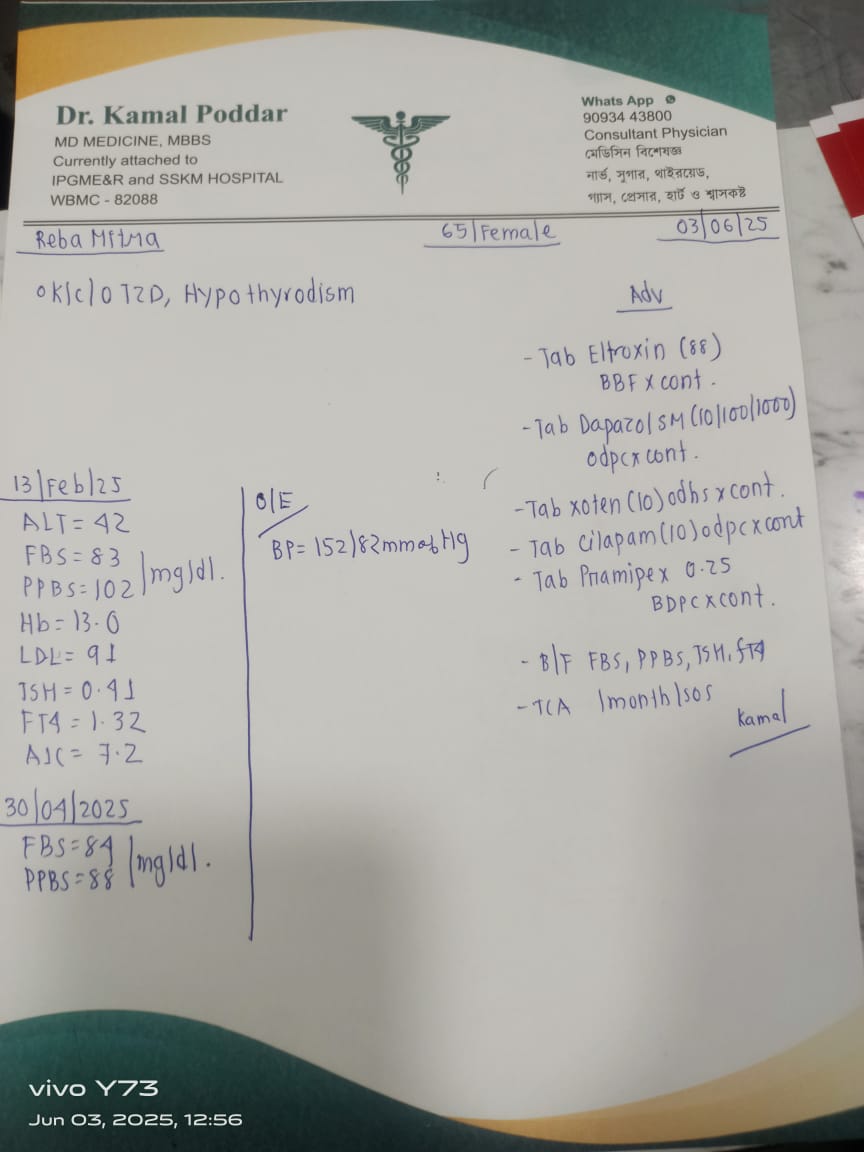 Dr. Kamal Poddar
MD MEDICINE, MBBS
Currently attached to
IPGME&R and SSKM HOSPITAL
WBMC - 82088
Whats App
90934 43800
Consultant Physician
মেডিসিন বিশেষজ্ঞ
নার্ভ, সুগার, থাইরয়েড,
গ্যাস, প্রেসার, হার্ট ও শ্বাসকষ্ট
Reba Mitra 65/Female 03/06/25
K/c/o T2D, Hypothyrodism
13/Feb/25
ALT = 42
FBS = 83
PPBS = 102 /mg/dl.
Hb = 13.0
LDL = 91
TSH = 0.41
FT4 = 1.32
A1C = 7.2
30/04/2025
FBS = 84
PPBS = 88 /mg/dl.
O/E
BP = 152/82 mm of Hg
Adv
- Tab Eltroxin (88)
BBF x cont.
- Tab Dapazol SM (10/100/1000)
odpc x cont.
- Tab xoten (10) odhs x cont.
- Tab Cilapam (10) odpc x cont
- Tab Pramipex 0.25
BDPC x cont.
- B/F FBS, PPBS, TSH, fT4
- TCA 1month/sos
Kamal
vivo Y73
Jun 03, 2025, 12:56